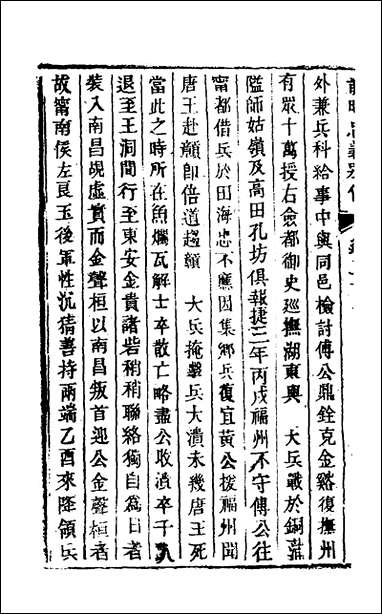 前明忠義別傳
外兼兵科給事中與同邑檢討傅公鼎銓克金谿復撫州
有眾十萬授右僉都御史巡撫湖東與　大兵戰於銅蒲
隘師姑嶺及高田孔坊俱報捷三年丙戌福州不守傅公往
甯都借兵於田海忠不應因集鄉兵復宜黃公援福州聞
唐王赴贛卽倍道趨贛　大兵掩擊兵大潰未幾唐王死
當此之時所在魚爛瓦解士卒散亡略盡公收潰卒千人
退至王洞間行至東安金貴諸砦稍稍聯絡獨自爲日者
裝入南昌覘虛實而金聲桓以南昌叛首迎公金聲桓者
故甯南侯左良玉後軍性沉猜善持兩端乙酉來降領兵